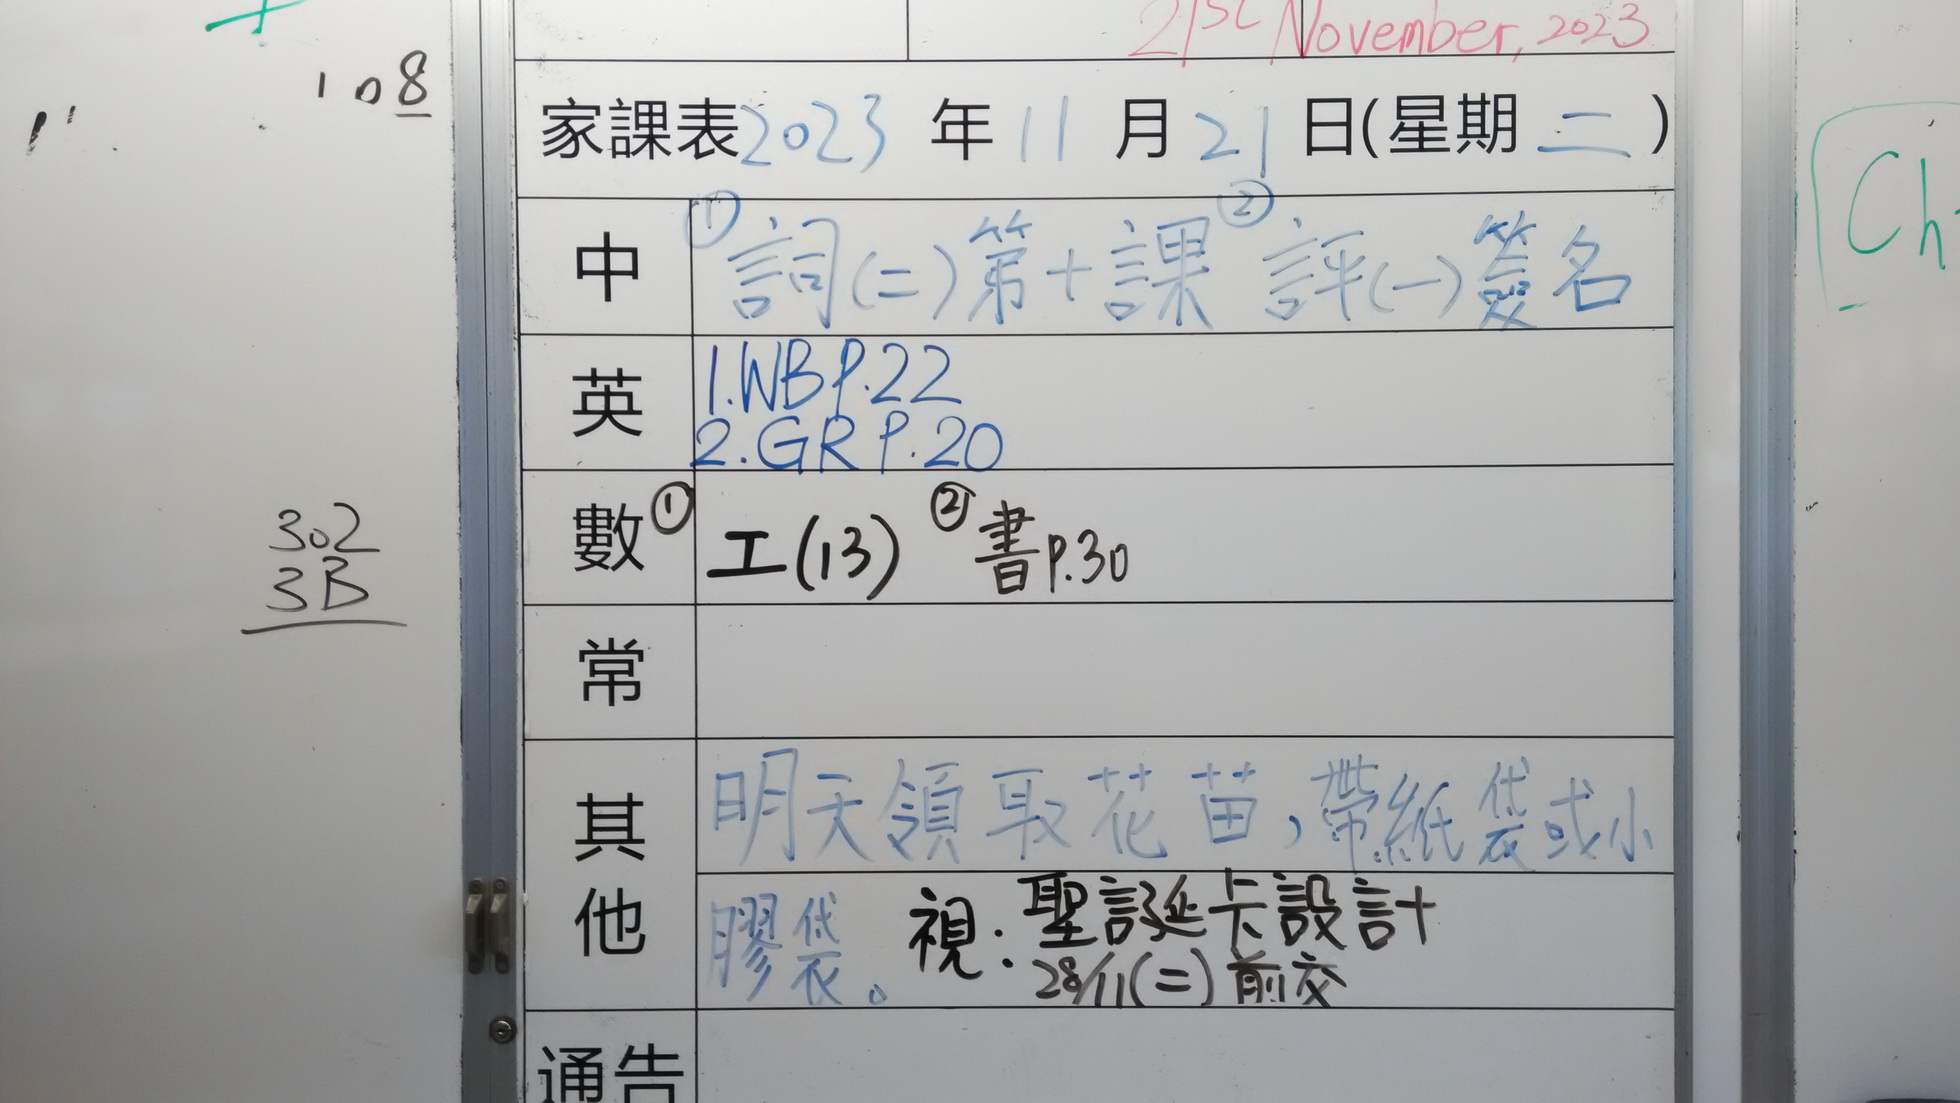 21st November, 2023
108
家課表2023年11月21日(星期二)
中 ①詞(二)第十課 ②評(一)簽名
英 1.WB P.22
2.GR P.20
數 ①工(13) ②書P.30
302
3B
常
其他 明天領取花苗,帶紙袋或小
膠袋。 視:聖誕卡設計
28/11(二)前交
通告
Ch